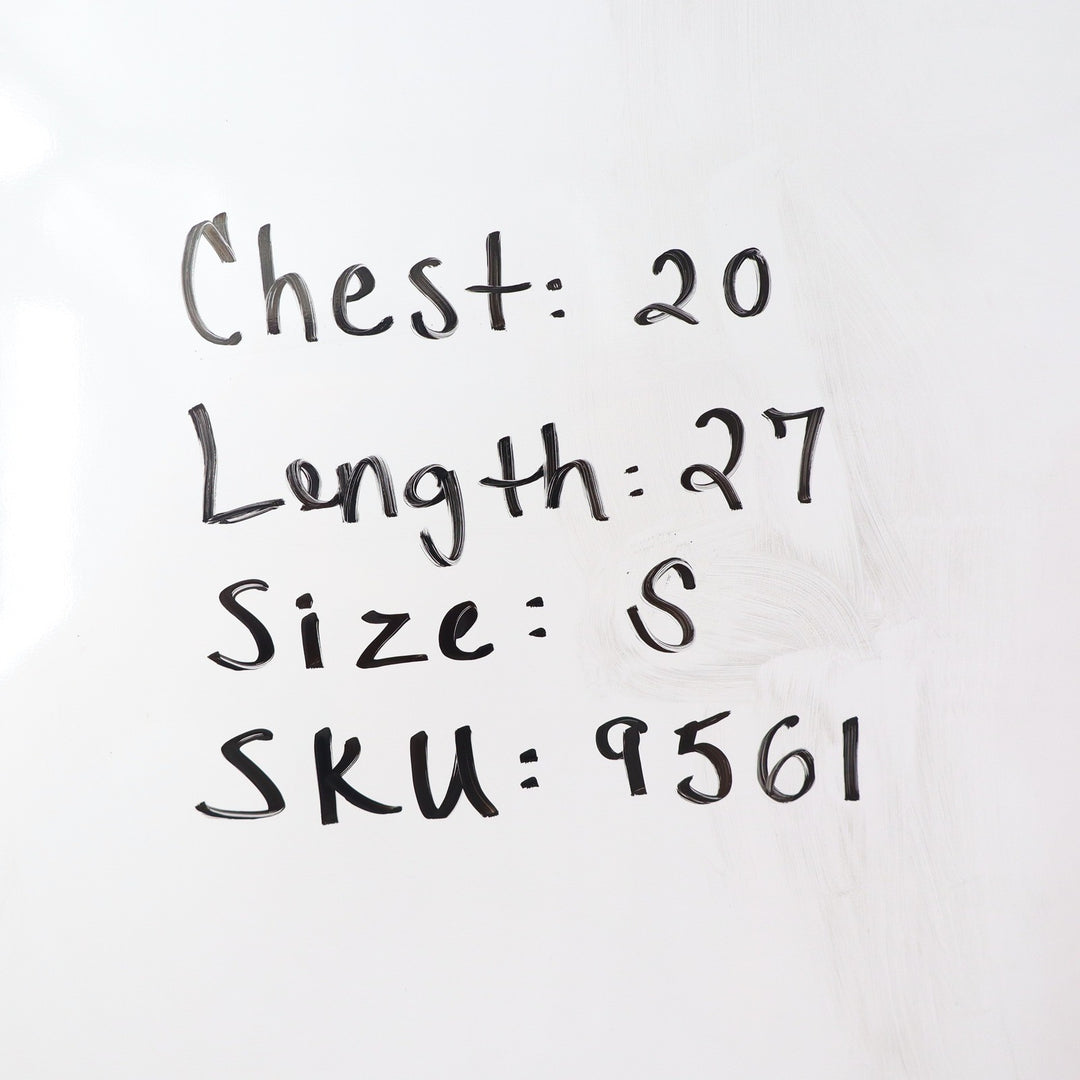 Chest: 20
Length: 27
Size: S
SKU: 9561